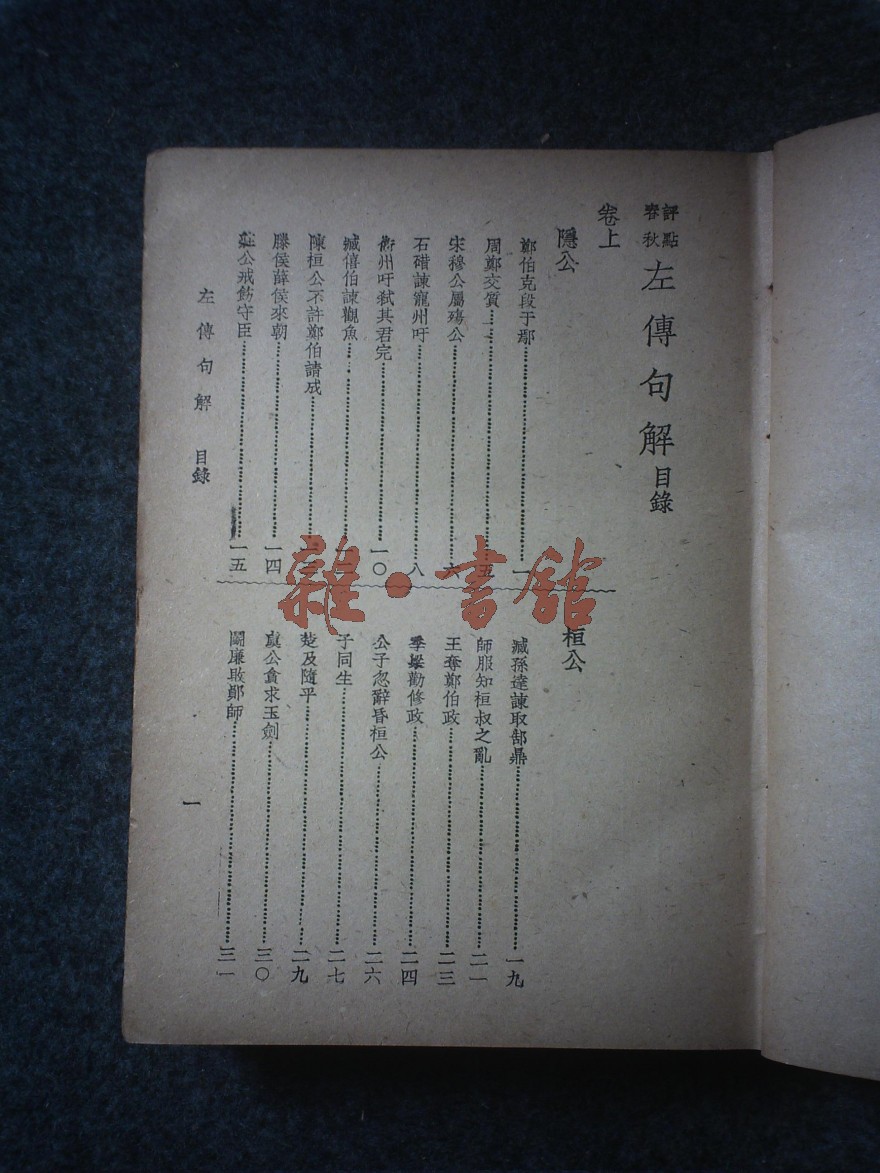 評點春秋左傳句解目錄
卷上
隱公
鄭伯克段于鄢……一
周鄭交質……五
宋穆公屬殤公……六
石碏諫寵州吁……八
衞州吁弒其君完……一〇
臧僖伯諫觀魚……
陳桓公不許鄭伯請成……
滕侯薛侯來朝……一四
莊公戒飭守臣……一五
桓公
臧孫達諫取郜鼎……一九
師服知桓叔之亂……二一
王奪鄭伯政……二三
季梁勸修政……二四
公子忽辭昏桓公……二六
子同生……二七
楚及隨平……二九
虞公貪求玉劍……三〇
鬭廉敗鄖師……三一
左傳句解 目錄
一
雜·書館